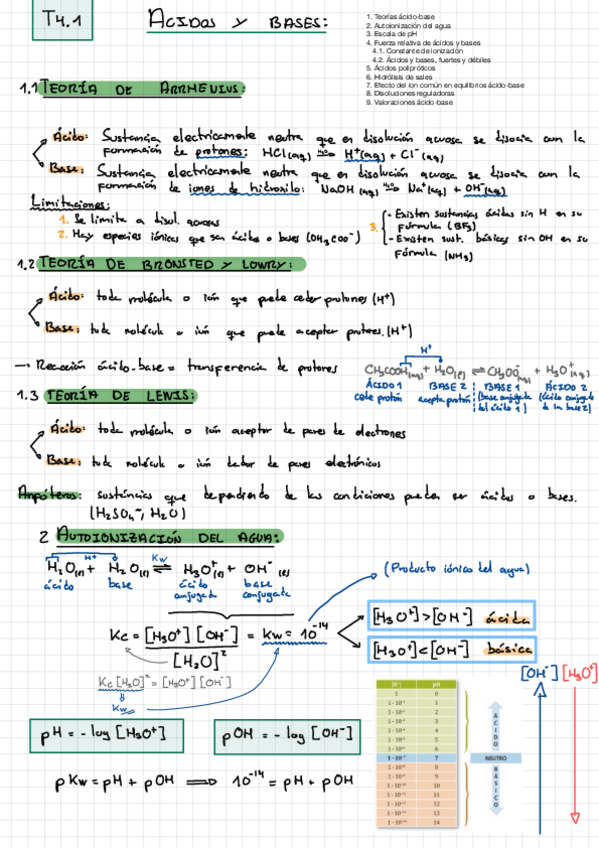 T4.1
ÁCIDOS Y BASES:
1. Teorías ácido-base
2. Autoionización del agua
3. Escala de pH
4. Fuerza relativa de ácidos y bases
4.1. Constante de ionización
4.2. Ácidos y bases, fuertes y débiles
5. Ácidos polipróticos
6. Hidrólisis de sales
7. Efecto del ion común en equilibrios ácido-base
8. Disoluciones reguladoras
9. Valoraciones ácido-base
1.1 TEORÍA DE ARRHENIUS:
Ácido: Sustancia electricamente neutra que en disolución acuosa se disocia con la
formación de protones: HCl(aq) H₂O→ H⁺(aq) + Cl⁻(aq)
Base: Sustancia electricamente neutra que en disolución acuosa se disocia con la
formación de iones de hidroxilo: NaOH(aq) H₂O→ Na⁺(aq) + OH⁻(aq)
Limitaciones:
1. Se limita a disol. acuosas
2. Hay especies iónicas que son ácidos o bases (OH₃COO⁻)
3. - Existen sustancias ácidas sin H en su
fórmula (BF₃)
- Existen sust. básicas sin OH en su
fórmula (NH₃)
1.2 TEORÍA DE BRONSTED Y LOWRY:
Ácido: toda molécula o ión que puede ceder protones (H⁺)
Base: toda molécula o ión que puede aceptar protones. (H⁺)
→ Reacción ácido-base = transferencia de protones
H⁺
CH₃COOH(aq) + H₂O(l) ⇌ CH₃OO⁻(aq) + H₃O⁺(aq)
ÁCIDO 1 BASE 2 BASE 1 ÁCIDO 2
cede protón acepta protón (base conjugada del ácido 1) (ácido conjugado de la base 2)
1.3 TEORÍA DE LEWIS:
Ácido: toda molécula o ión aceptor de pares de electrones
Base: toda molécula o ión dador de pares electrónicos
Anfóteros: sustancias que dependiendo de las condiciones pueden ser ácidos o bases.
(H₂SO₄⁻, H₂O)
2 AUTOIONIZACIÓN DEL AGUA:
H⁺ Kw
H₂O(l) + H₂O(l) ⇌ H₃O⁺(l) + OH⁻(l)
ácido base ácido conjugado base conjugada
(Producto iónico del agua)
Kc = [H₃O⁺][OH⁻] / [H₂O]² = Kw = 10⁻¹⁴
[H₃O⁺]>[OH⁻] ácida
[H₃O⁺]<[OH⁻] básica
Kc[H₂O]² = [H₃O⁺][OH⁻]
Kw
[OH⁻] [H₃O⁺]
pH = -log[H₃O⁺]
pOH = -log[OH⁻]
pKw = pH + pOH ⟹ 10⁻¹⁴ = pH + pOH
pH
1 0
1 · 10⁻¹ 1
1 · 10⁻² 2
1 · 10⁻³ 3
1 · 10⁻⁴ 4
1 · 10⁻⁵ 5
1 · 10⁻⁶ 6
1 · 10⁻⁷ 7 NEUTRO
1 · 10⁻⁸ 8
1 · 10⁻⁹ 9
1 · 10⁻¹⁰ 10
1 · 10⁻¹¹ 11
1 · 10⁻¹² 12
1 · 10⁻¹³ 13
1 · 10⁻¹⁴ 14
ÁCIDO
BÁSICO